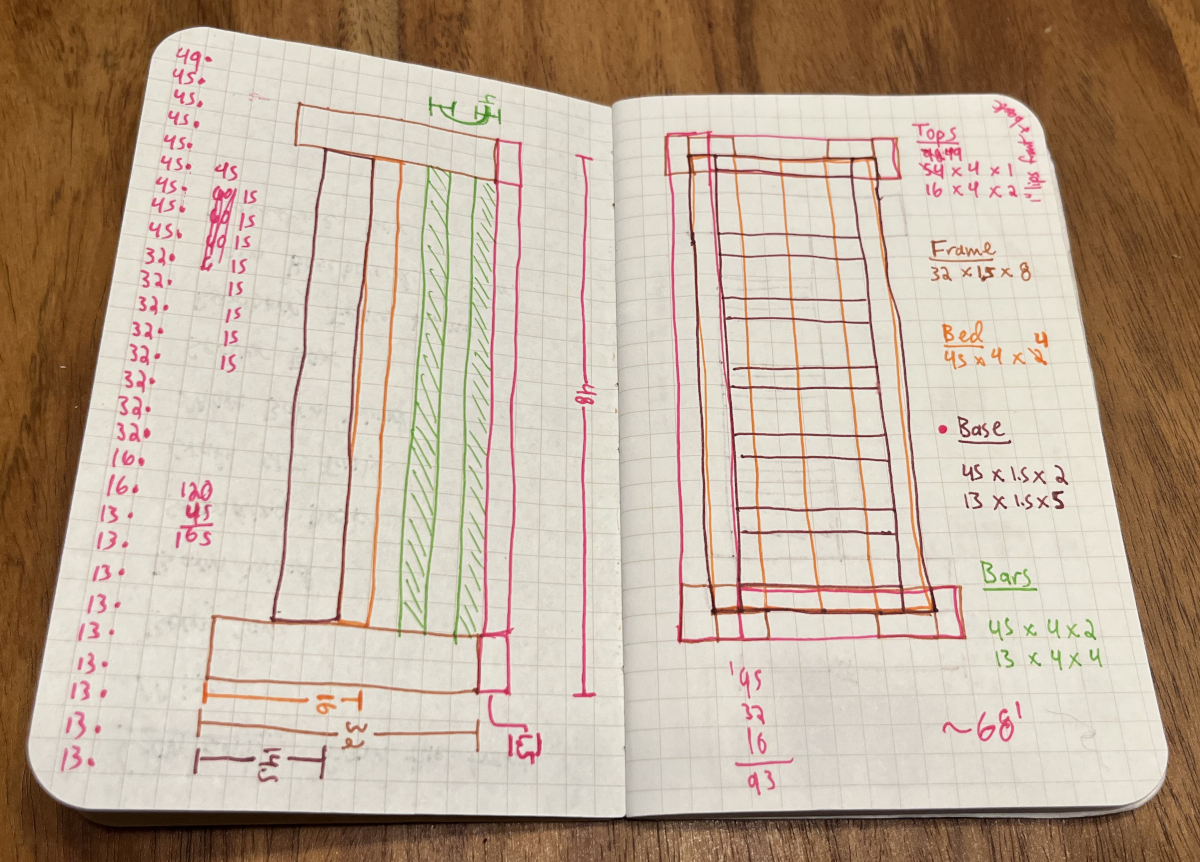 49.
45.
45.
45.
45.
45.
45.
45.
45.
32.
32.
32.
32.
32.
32.
32.
32.
16.
16.
13.
13.
13.
13.
13.
13.
13.
13.
13.
45
15
15
15
15
15
15
15
15
120
45
165
4
48
16
32
14.5
3
Tops
49
54 x 4 x 1
16 x 4 x 2
Frame
32 x 1.5 x 8
Bed
45 x 4 x 4
Base
45 x 1.5 x 2
13 x 1.5 x 5
Bars
45 x 4 x 2
13 x 4 x 4
1
45
32
16
93
~68'